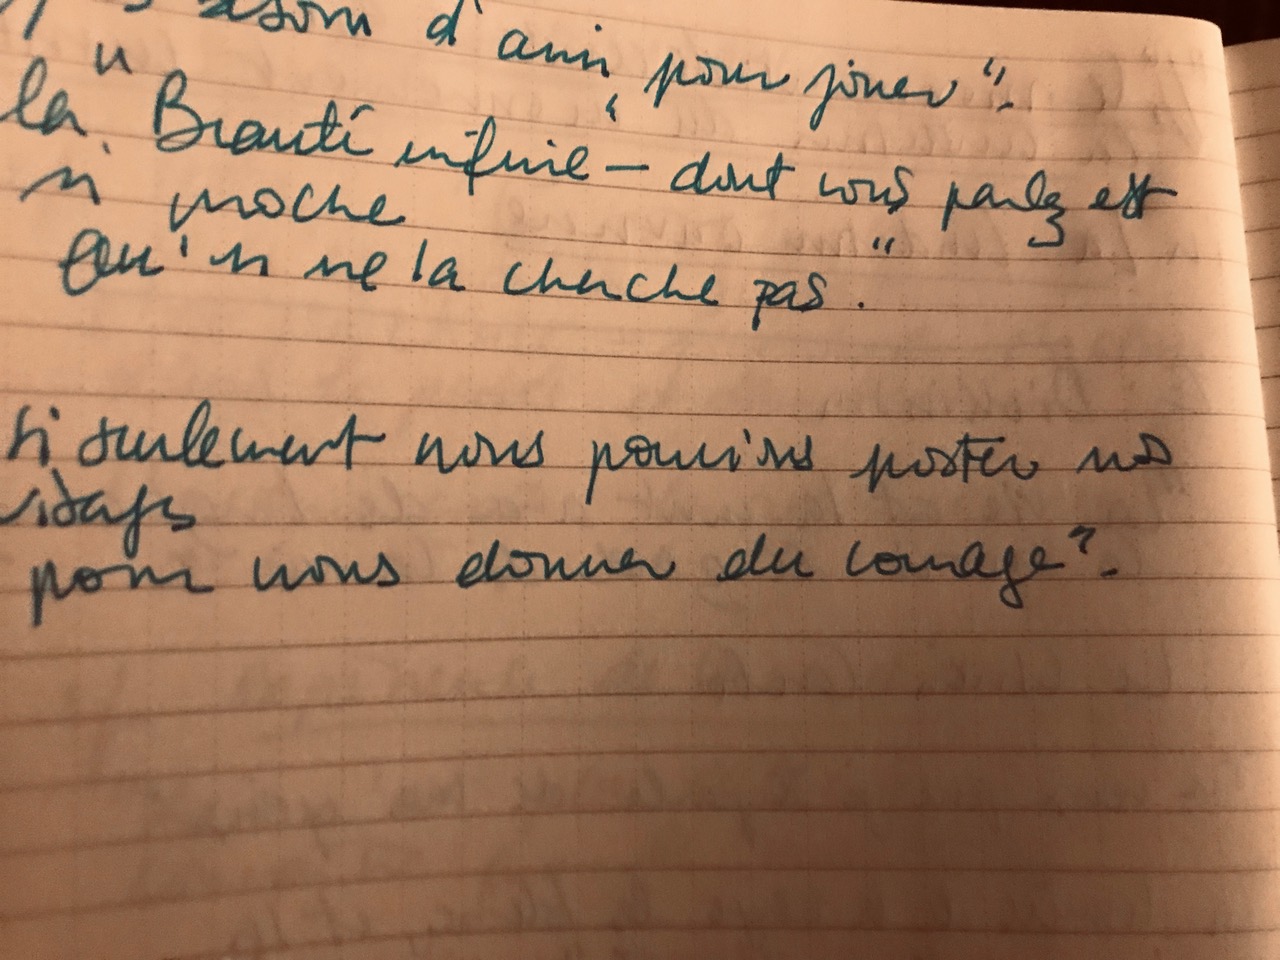 besoin d'ami pour jouer".
la "Beauté infinie – dont vous parlez est
si moche
Qu'on ne la cherche pas".
si seulement nous pouvions poster nos
visages
pour nous donner du courage".